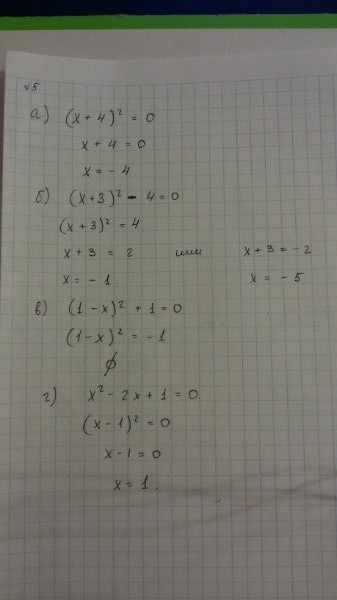 √5
а) (x + 4)² = 0
x + 4 = 0
x = - 4
б) (x + 3)² - 4 = 0
(x + 3)² = 4
x + 3 = 2 или x + 3 = - 2
x = - 1 x = - 5
в) (1 - x)² + 1 = 0
(1 - x)² = - 1
∅
г) x² - 2x + 1 = 0.
(x - 1)² = 0
x - 1 = 0
x = 1.